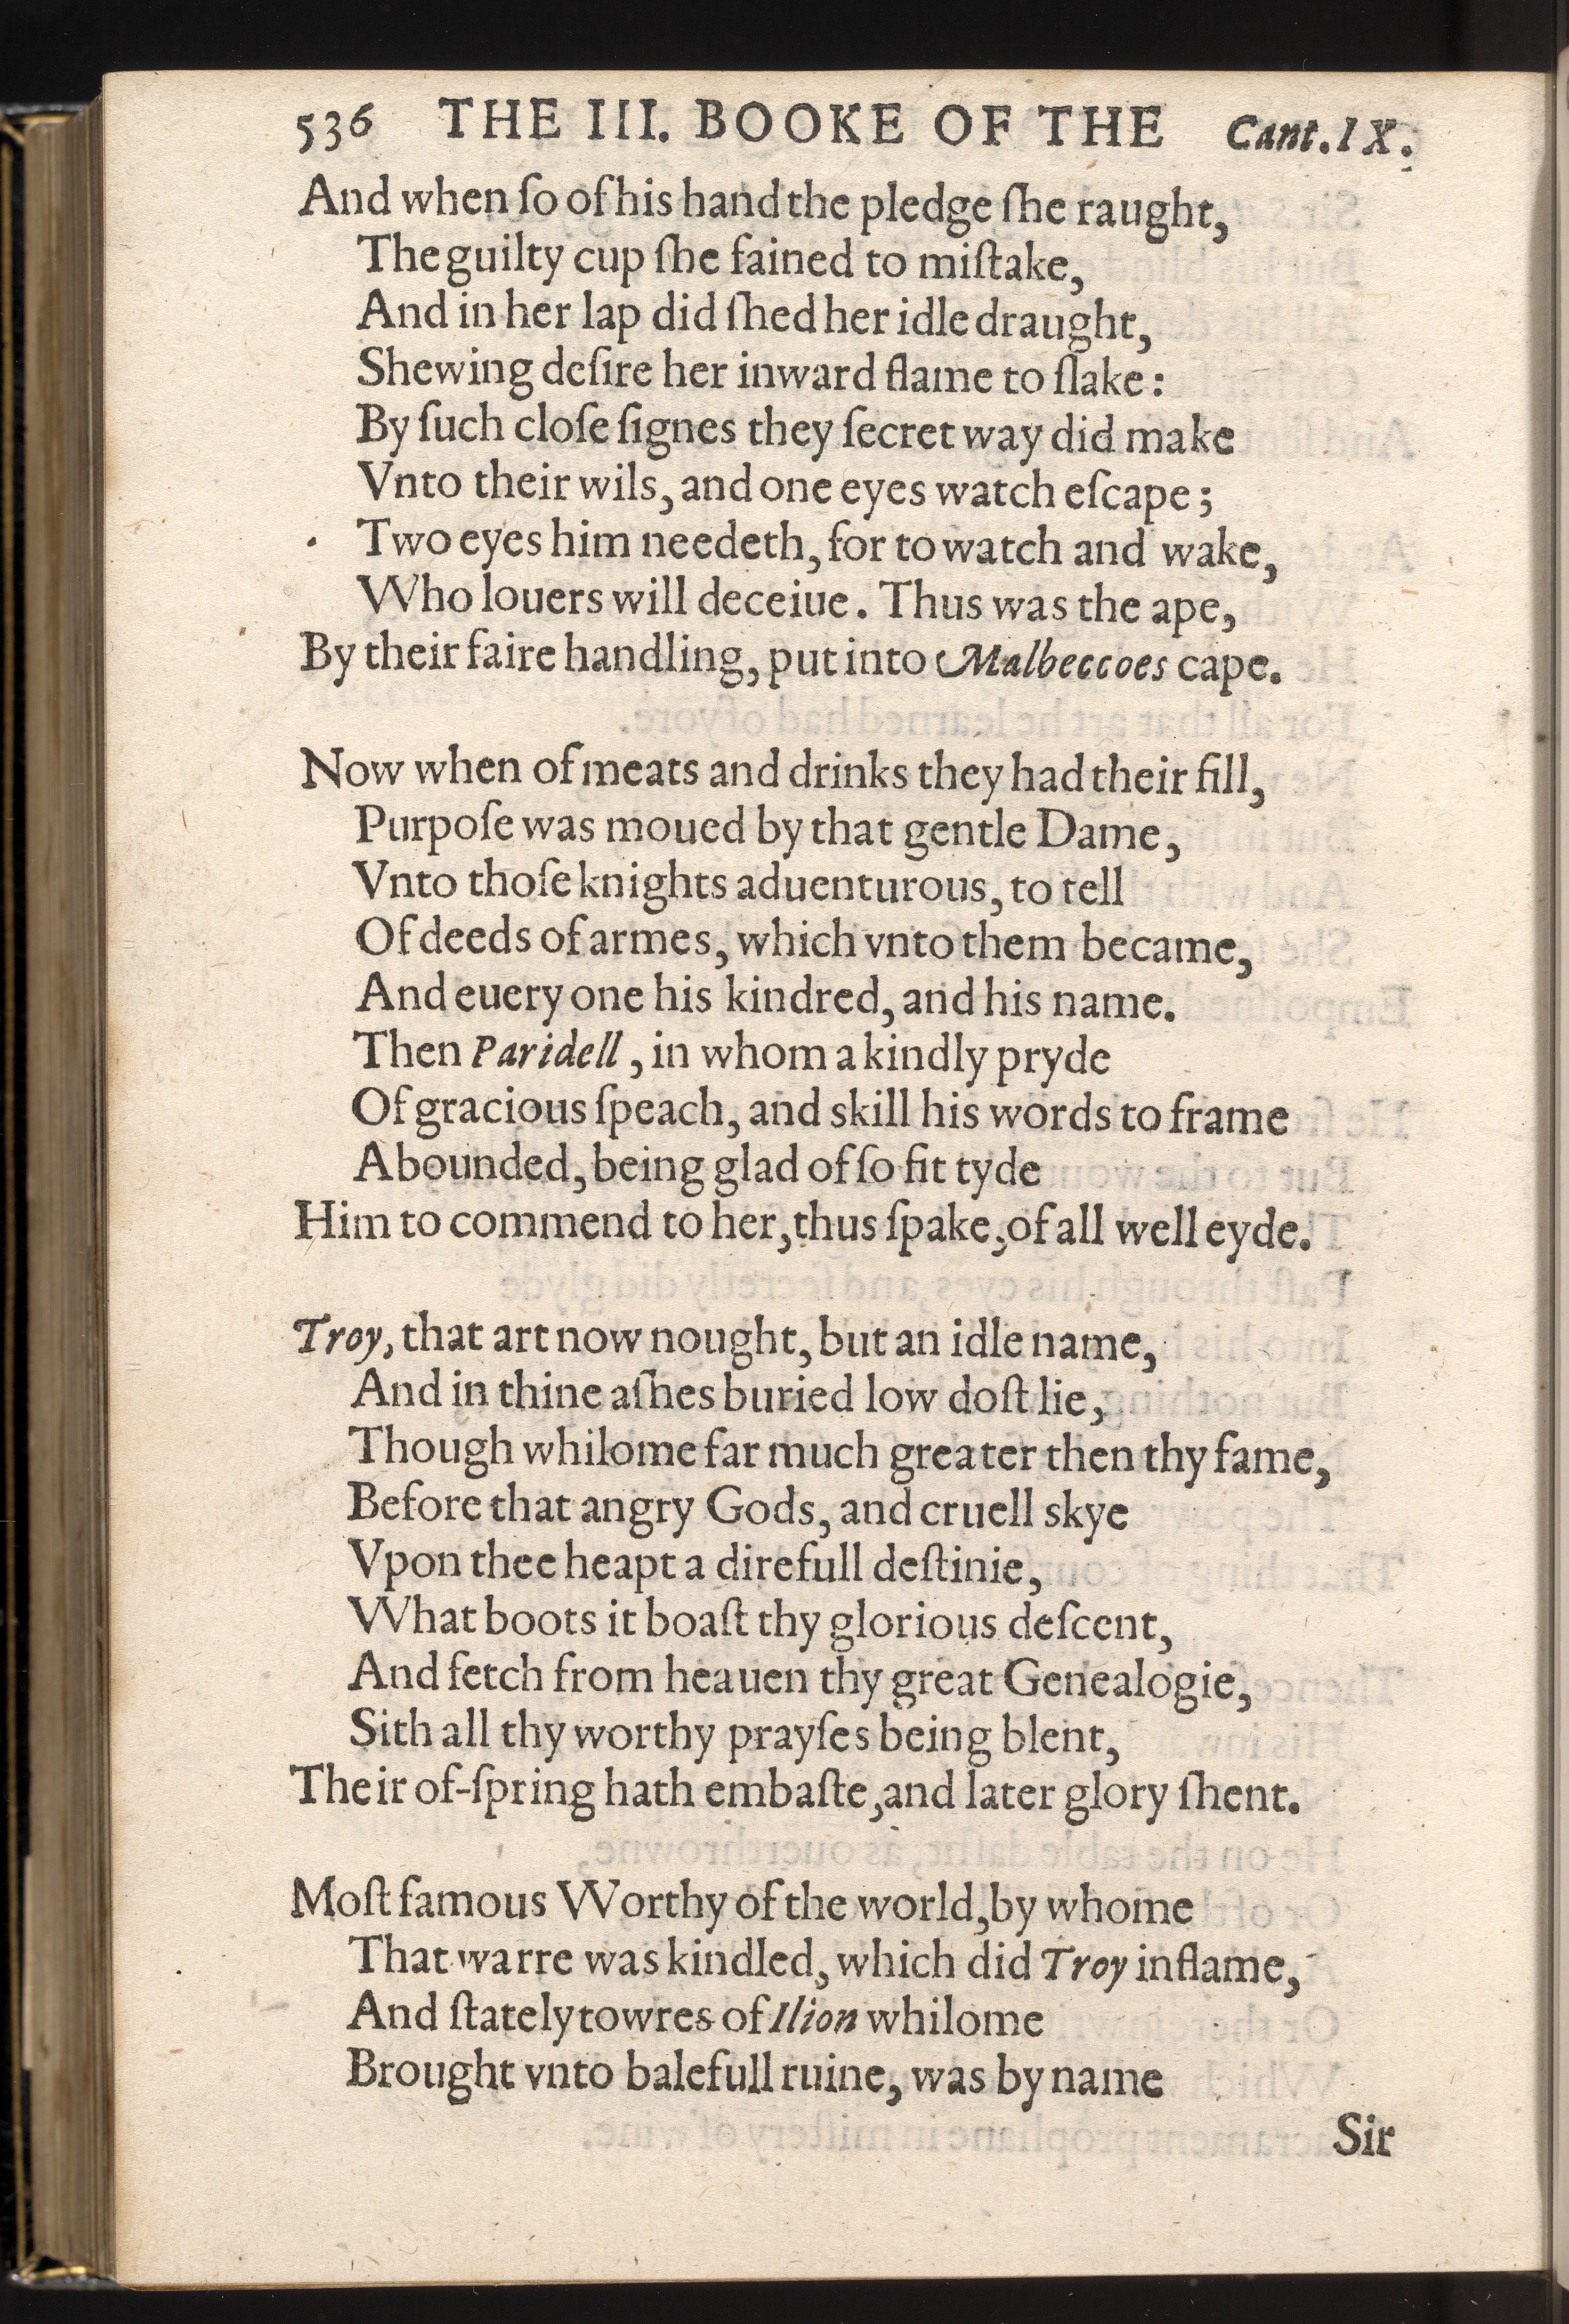 536 THE III. BOOKE OF THE Cant. IX.
And when ſo of his hand the pledge ſhe raught,
The guilty cup ſhe fained to miſtake,
And in her lap did ſhed her idle draught,
Shewing deſire her inward flame to ſlake:
By ſuch cloſe ſignes they ſecret way did make
Vnto their wils, and one eyes watch eſcape;
Two eyes him needeth, for to watch and wake,
Who louers will deceiue. Thus was the ape,
By their faire handling, put into Malbeccoes cape.
Now when of meats and drinks they had their fill,
Purpoſe was moued by that gentle Dame,
Vnto thoſe knights aduenturous, to tell
Of deeds of armes, which vnto them became,
And euery one his kindred, and his name.
Then Paridell, in whom a kindly pryde
Of gracious ſpeach, and skill his words to frame
Abounded, being glad of ſo fit tyde
Him to commend to her, thus ſpake, of all well eyde.
Troy, that art now nought, but an idle name,
And in thine aſhes buried low doſt lie,
Though whilome far much greater then thy fame,
Before that angry Gods, and cruell skye
Vpon thee heapt a direfull deſtinie,
What boots it boaſt thy glorious deſcent,
And fetch from heauen thy great Genealogie,
Sith all thy worthy prayſes being blent,
Their of-ſpring hath embaſte, and later glory ſhent.
Moſt famous Worthy of the world, by whome
That warre was kindled, which did Troy inflame,
And ſtately towres of Ilion whilome
Brought vnto balefull ruine, was by name
Sir